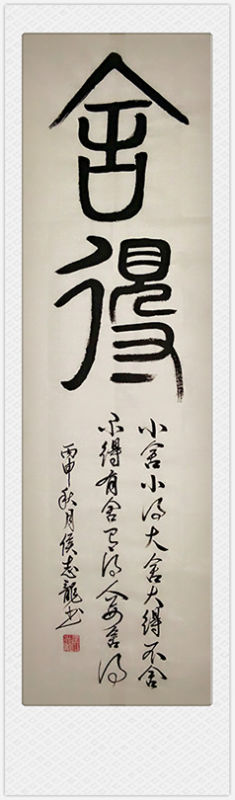 舍得
小舍小得大舍大得不舍
不得有舍有得人要舍得
丙申秋月侯志龍书